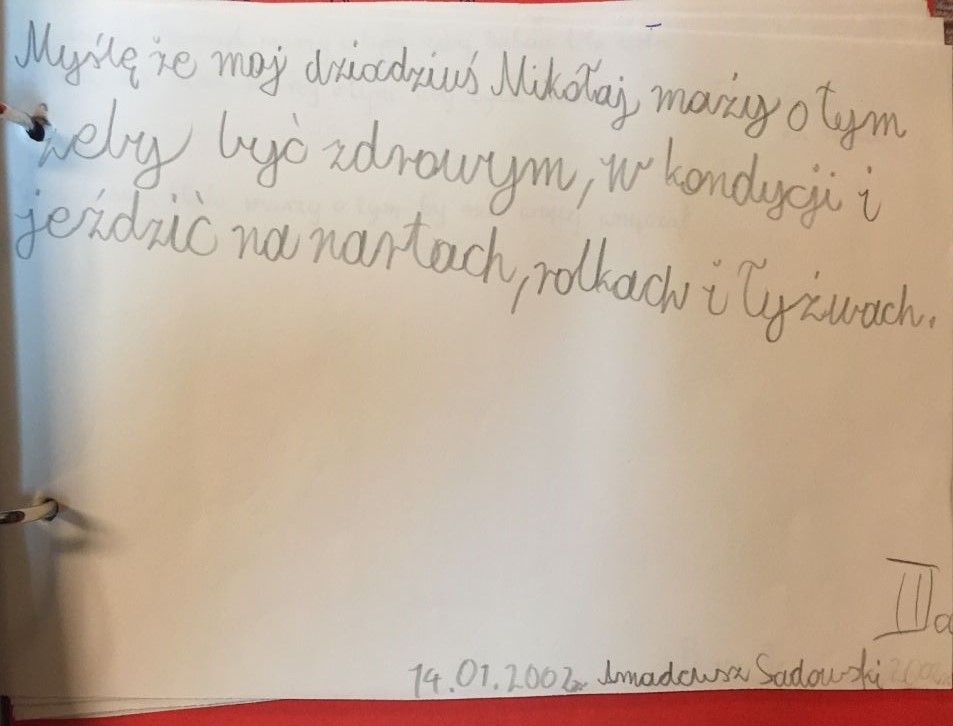 Myślę że moj dziadziuś Mikołaj maży o tym
żeby być zdrowym, w kondycji i
jeździć na nartach, rolkach i łyżwach.
IIa
14.01.2002r Amadeusz Sadowski